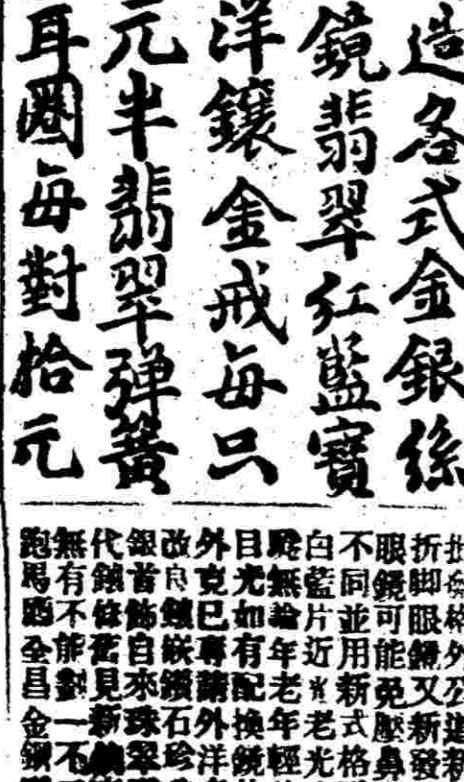 造各式金銀絲
鏡翡翠紅藍寶
洋鑲金戒每只
元半翡翠弹簧
耳圈每對拾元
格外公道新
折脚眼鏡又新發
眼鏡可能免壓鼻
不同並用新式格
白藍片近光老光
無論年老年輕
目光如有配換鏡
外克己專請外洋
改良鑲嵌鑽石珍
銀首飾自來珠翠
代鑲修舊見新
無有不能對一不
跑馬廳金昌金鑽